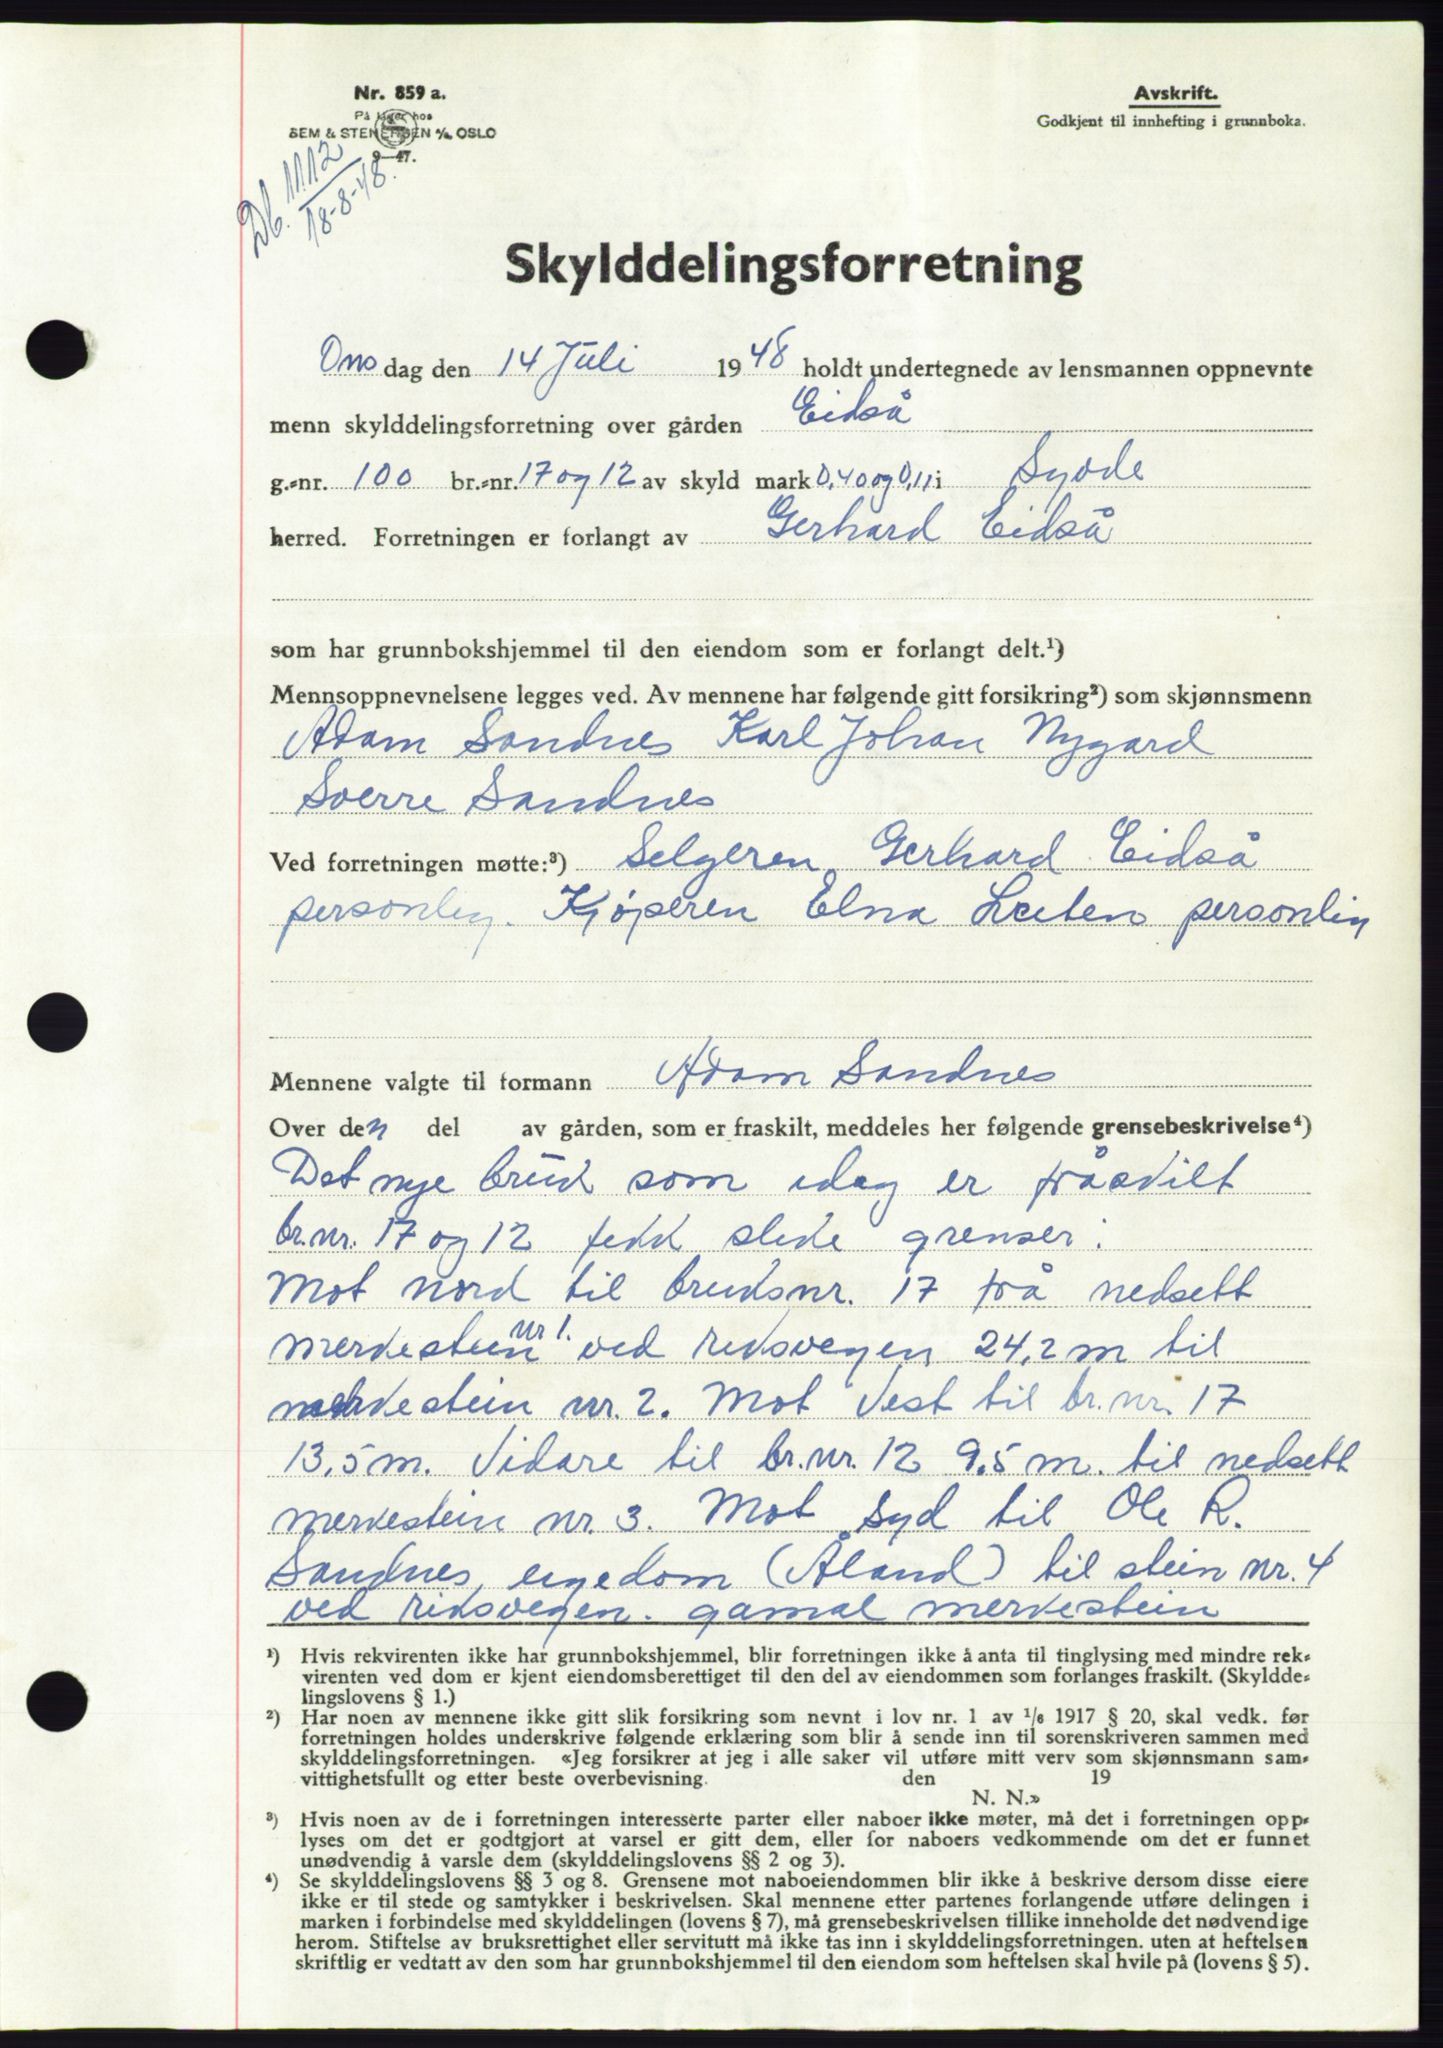 Nr. 859 a.
På lager hos
SEM & STENERSEN A/S, OSLO
9-47.
Avskrift.
Godkjent til innhefting i grunnboka.
Db. 1112
18-8-48.
Skylddelingsforretning
Onsdag den 14 Juli 1948 holdt undertegnede av lensmannen oppnevnte
menn skylddelingsforretning over gården Eidså
g.-nr. 100 br.-nr. 17 og 12 av skyld mark 0,40 og 0,11 i Syvde
herred. Forretningen er forlangt av Gerhard Eidså
som har grunnbokshjemmel til den eiendom som er forlangt delt.¹)
Mennsoppnevnelsene legges ved. Av mennene har følgende gitt forsikring²) som skjønnsmenn
Adam Sandnes Karl Johan Nygard
Sverre Sandnes
Ved forretningen møtte:³) Selgeren, Gerhard Eidså
personleg. Kjøperen Elna personlig
Mennene valgte til formann Adam Sandnes
Over den del av gården, som er fraskilt, meddeles her følgende grensebeskrivelse⁴)
Det nye bruk som idag er fråskilt
br.nr. 17 og 12 fekk slike grenser:
Mot nord til bruksnr. 17 frå nedsett
merkestein nr 1. ved riksvegen 24,2 m til
merkestein nr. 2. Mot Vest til br. nr. 17
13,5 m. Vidare til br.nr. 12 9,5 m. til nedsett
merkestein nr. 3. Mot Syd til Ole R.
Sandnes, eigedom (Åland) til stein nr. 4
ved riksvegen. gamal merkestein
¹) Hvis rekvirenten ikke har grunnbokshjemmel, blir forretningen ikke å anta til tinglysing med mindre rek-
virenten ved dom er kjent eiendomsberettiget til den del av eiendommen som forlanges fraskilt. (Skyldde-
lingslovens § 1.)
²) Har noen av mennene ikke gitt slik forsikring som nevnt i lov nr. 1 av 1/6 1917 § 20, skal vedk. før
forretningen holdes underskrive følgende erklæring som blir å sende inn til sorenskriveren sammen med
skylddelingsforretningen. «Jeg forsikrer at jeg i alle saker vil utføre mitt verv som skjønnsmann sam-
vittighetsfullt og etter beste overbevisning. den 19
N. N.»
³) Hvis noen av de i forretningen interesserte parter eller naboer ikke møter, må det i forretningen opp-
lyses om det er godtgjort at varsel er gitt dem, eller for naboers vedkommende om det er funnet
unødvendig å varsle dem (skylddelingslovens §§ 2 og 3).
⁴) Se skylddelingslovens §§ 3 og 8. Grensene mot naboeiendommen blir ikke å beskrive dersom disse eiere
ikke er til stede og samtykker i beskrivelsen. Skal mennene etter partenes forlangende utføre delingen i
marken i forbindelse med skylddelingen (lovens § 7), må grensebeskrivelsen tillike inneholde det nødvendige
herom. Stiftelse av bruksrettighet eller servitutt må ikke tas inn i skylddelingsforretningen. uten at heftelsen
skriftlig er vedtatt av den som har grunnbokshjemmel til den eiendom som heftelsen skal hvile på (lovens § 5).